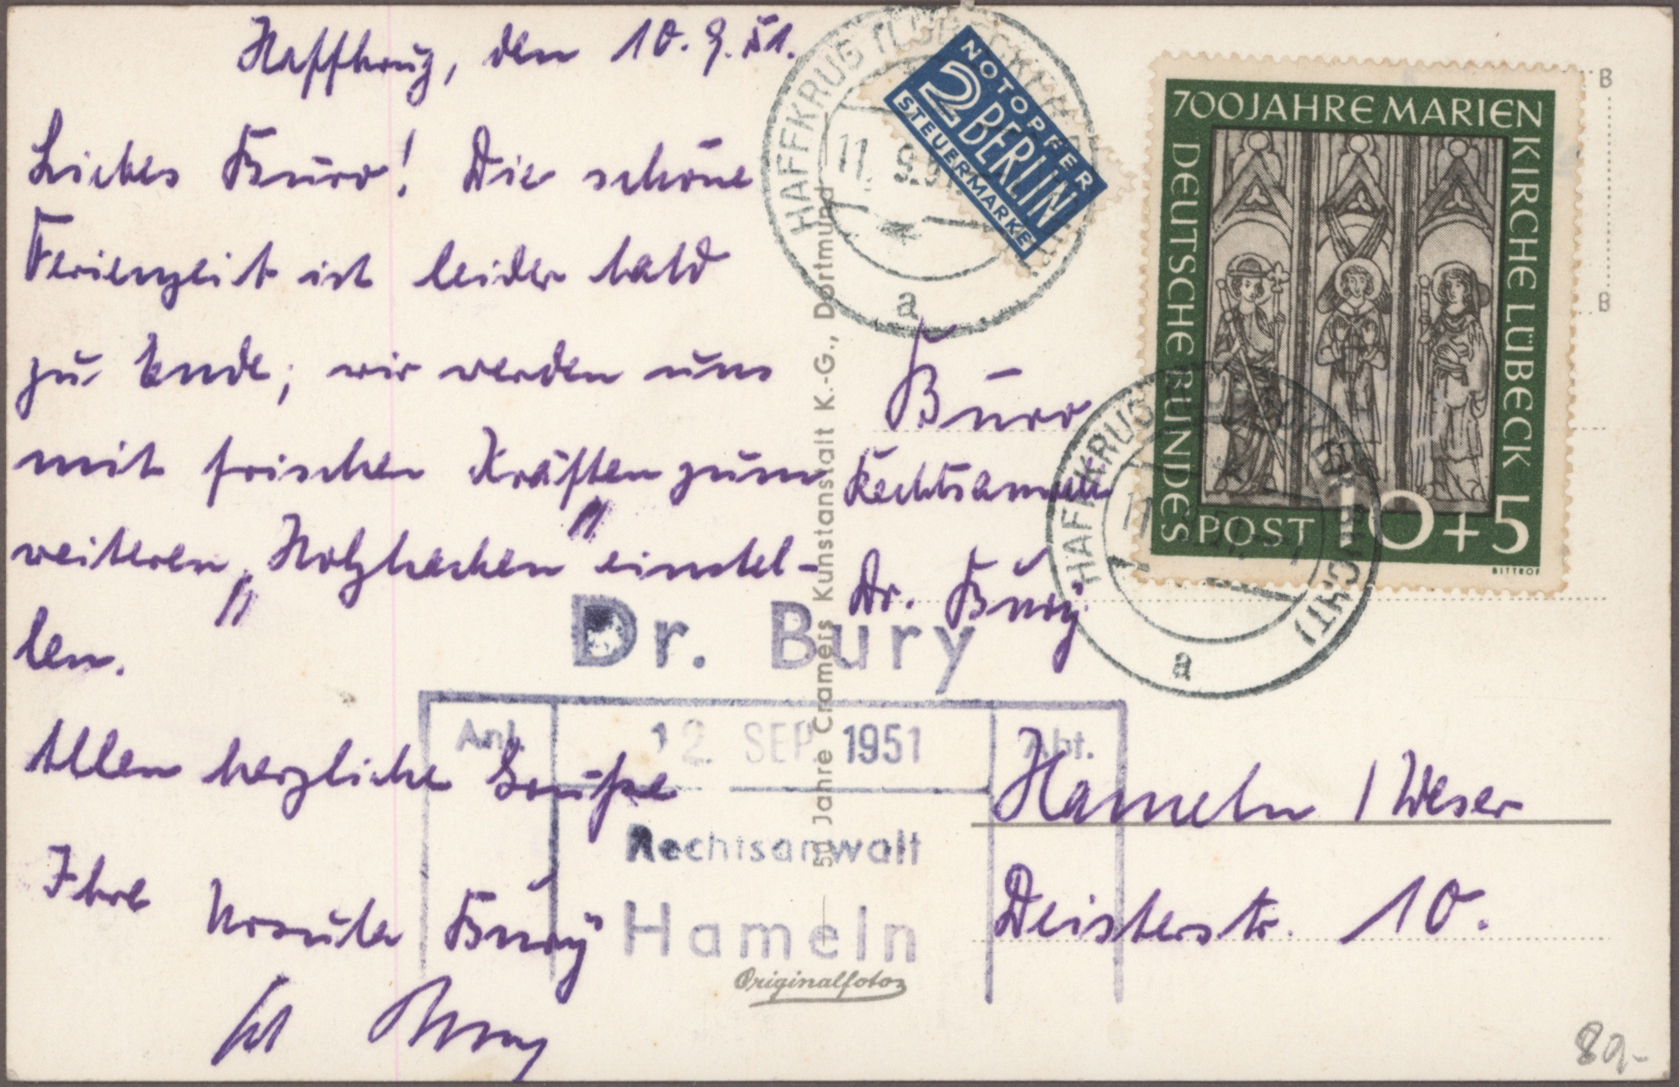 Haffkrug, den 10.9.51.
Liebes Büro! Die schöne
Ferienzeit ist leider bald
zu Ende; wir werden uns
mit frischen Kräften zum
weiteren „Holzhacken" einstel-
len.
Allen herzliche Grüße
Ihre Ursula Bury
Bury
HAFFKRUG (LÜBECKER BUCHT)
11. 9.51
a
NOTOPFER
2 BERLIN
STEUERMARKE
700 JAHRE MARIENKIRCHE LÜBECK
DEUTSCHE BUNDESPOST
10+5
BITTROF
B
B
HAFFKRUG
a
Büro
Rechtsanwalt
Dr. Bury
Hameln / Weser
Deisterstr. 10.
Dr. Bury
Anl.
12. SEP. 1951
Abt.
Rechtsanwalt
Hameln
50 Jahre Cramers Kunstanstalt K.-G., Dortmund
Originalfoto
89-